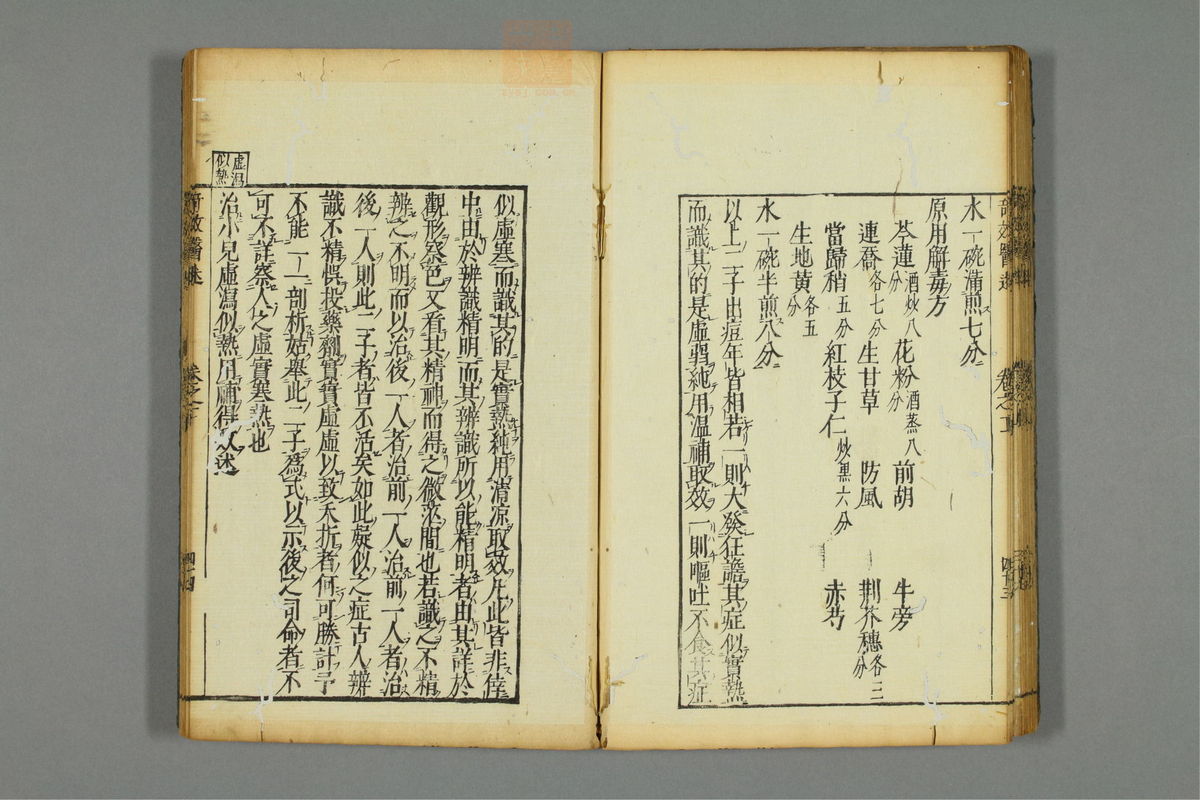 水一碗滿煎七分
原用解毒方
芩蓮酒炒八分 花粉酒蒸八分 前胡 牛旁
連喬各七分 生甘草 防風 荆芥穗各三分
當歸稍五分 紅枝子仁炒黑六分 赤芍
生地黃各五分
水一碗半煎八分
以上二子出痘年皆相若一則大發狂譫其症似實熱
而識其的是虛弱純用溫補取效一則嘔吐不食其症
似虛寒而識其的是實熱純用清凉取效凡此皆非倖
中由於辨識精明而其辨識所以能精明者由其詳於
觀形察色又看其精神而得之微茫間也若識之不精
辨之不明而以治後一人者治前一人治前一人者治
後一人則此二子者皆不活矣如此疑似之症古人辨
識不精悞投藥劑實實虛虛以致夭折者何可勝計予
不能一一剖析姑舉此二子爲式以示後之司命者不
可不詳察人之虛實寒熱也
虛瀉似熱
治小兒虛瀉似熱用補得效述